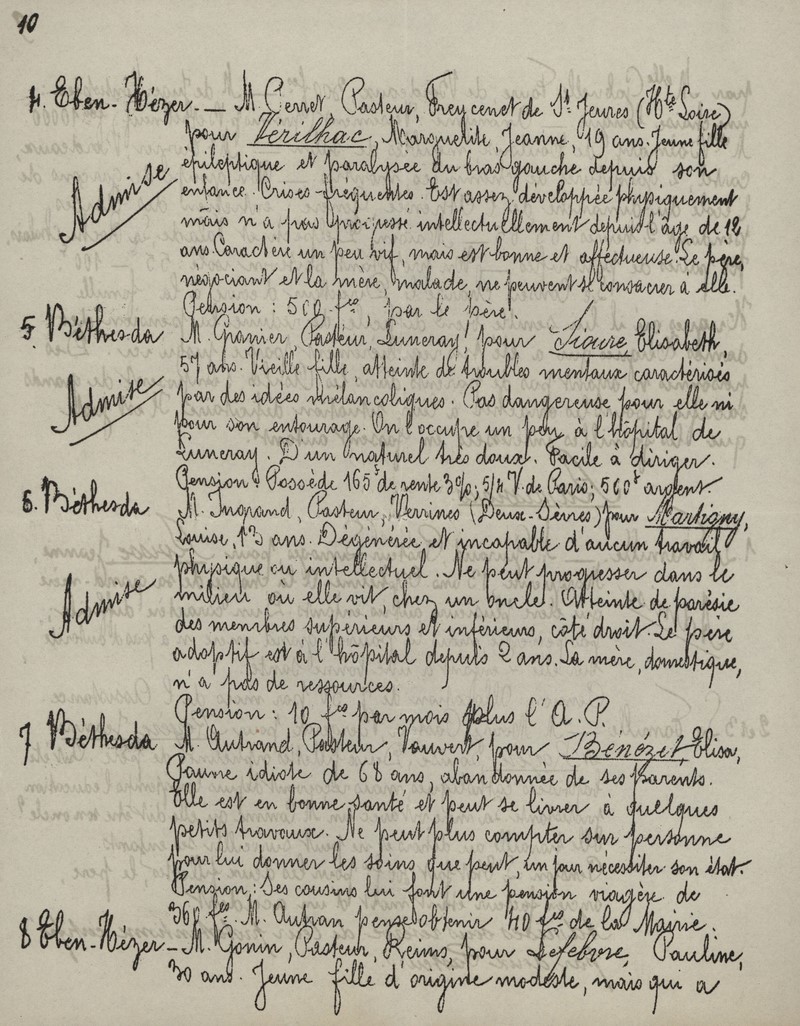 10
4. Eben-Hézer. — M. Perret, Pasteur, Freycenet de St Jeures (Hte Loire)
pour Vérilhac, Marguerite, Jeanne, 19 ans. Jeune fille
épileptique et paralysée du bras gauche depuis son
enfance. Crises fréquentes. Est assez développée physiquement
Admise
mais n'a pas progressé intellectuellement depuis l'âge de 12
ans. Caractère un peu vif, mais est bonne et affectueuse. Le père,
négociant et la mère, malade, ne peuvent se consacrer à elle.
Pension : 500 fcs, par le père.
5. Béthesda M. Granier, Pasteur, Luneray, pour Elisabeth,
57 ans. Vieille fille, atteinte de troubles mentaux caractérisés
Admise
par des idées mélancoliques. Pas dangereuse pour elle ni
pour son entourage. On l'occupe un peu à l'hôpital de
Luneray. D'un naturel très doux. Facile à diriger.
Pension : Possède 165f de rente 3%; 5/4 V. de Paris; 500f argent.
6. Béthesda M. Ingrand, Pasteur, Verrines (Deux-Sèvres) pour Martigny,
Louise, 13 ans. Dégénérée et incapable d'aucun travail
physique ou intellectuel. Ne peut progresser dans le
Admise
milieu où elle vit, chez un oncle. Atteinte de parésie
des membres supérieurs et inférieurs, côté droit. Le père
adoptif est à l'hôpital depuis 2 ans. La mère, domestique,
n'a pas de ressources.
Pension : 10 fcs par mois plus l'A.P.
7 Béthesda M. Autrand, Pasteur, Vauvert, pour Bénézet, Elisa,
Pauvre idiote de 68 ans, abandonnée de ses parents.
Elle est en bonne santé et peut se livrer à quelques
petits travaux. Ne peut plus compter sur personne
pour lui donner les soins que peut, un jour nécessiter son état.
Pension : Ses cousins lui font une pension viagère de
360 fcs. M. Autran pense obtenir 40 fcs de la Mairie.
8 Eben-Hézer — M. Gonin, Pasteur, Reims, pour Lefebvre, Pauline,
30 ans. Jeune fille d'origine modeste, mais qui a